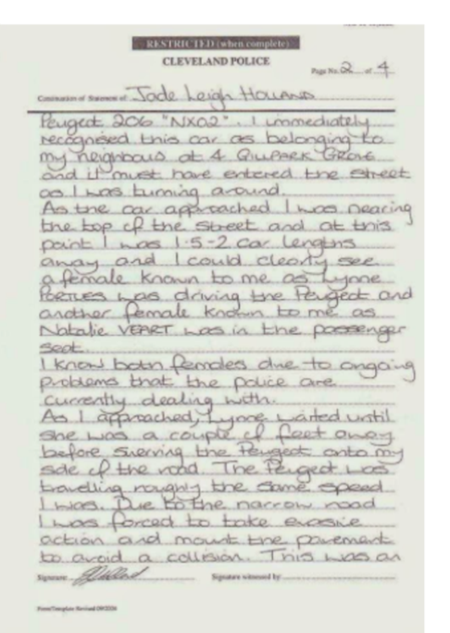 RESTRICTED (when complete)
CLEVELAND POLICE
Page No. 2 of 4
Continuation of Statement of Jade Leigh Holland
Peugeot 206 "NX02". I immediately
recognised this car as belonging to
my neighbours at 4
and it must have entered the street
as I was turning around.
As the car approached I was nearing
the top of the street and at this
point I was 1.5-2 car lengths
away and I could clearly see
a female known to me as Lynne
was driving the Peugeot and
another female known to me as
Natalie was in the passenger
seat.
I know both females due to ongoing
problems that the police are
currently dealing with.
As I approached, Lynne waited until
she was a couple of feet away
before swerving the Peugeot onto my
side of the road. The Peugeot was
travelling roughly the same speed
I was. Due to the narrow road
I was forced to take evasive
action and mount the pavement
to avoid a collision. This was an
Signature: Signature witnessed by: